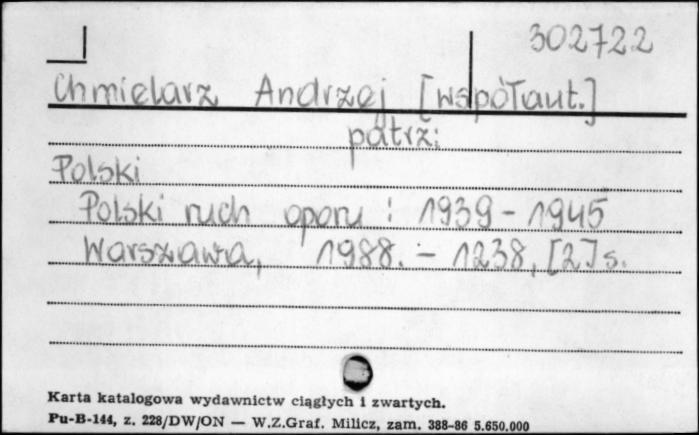 302722
Chmielarz Andrzej [współaut.]
patrz:
Polski
Polski ruch oporu : 1939-1945
Warszawa, 1988. - 1238, [2] s.
Karta katalogowa wydawnictw ciągłych i zwartych.
Pu-B-144, z. 228/DW/ON — W.Z.Graf. Milicz, zam. 388-86 5.650.000